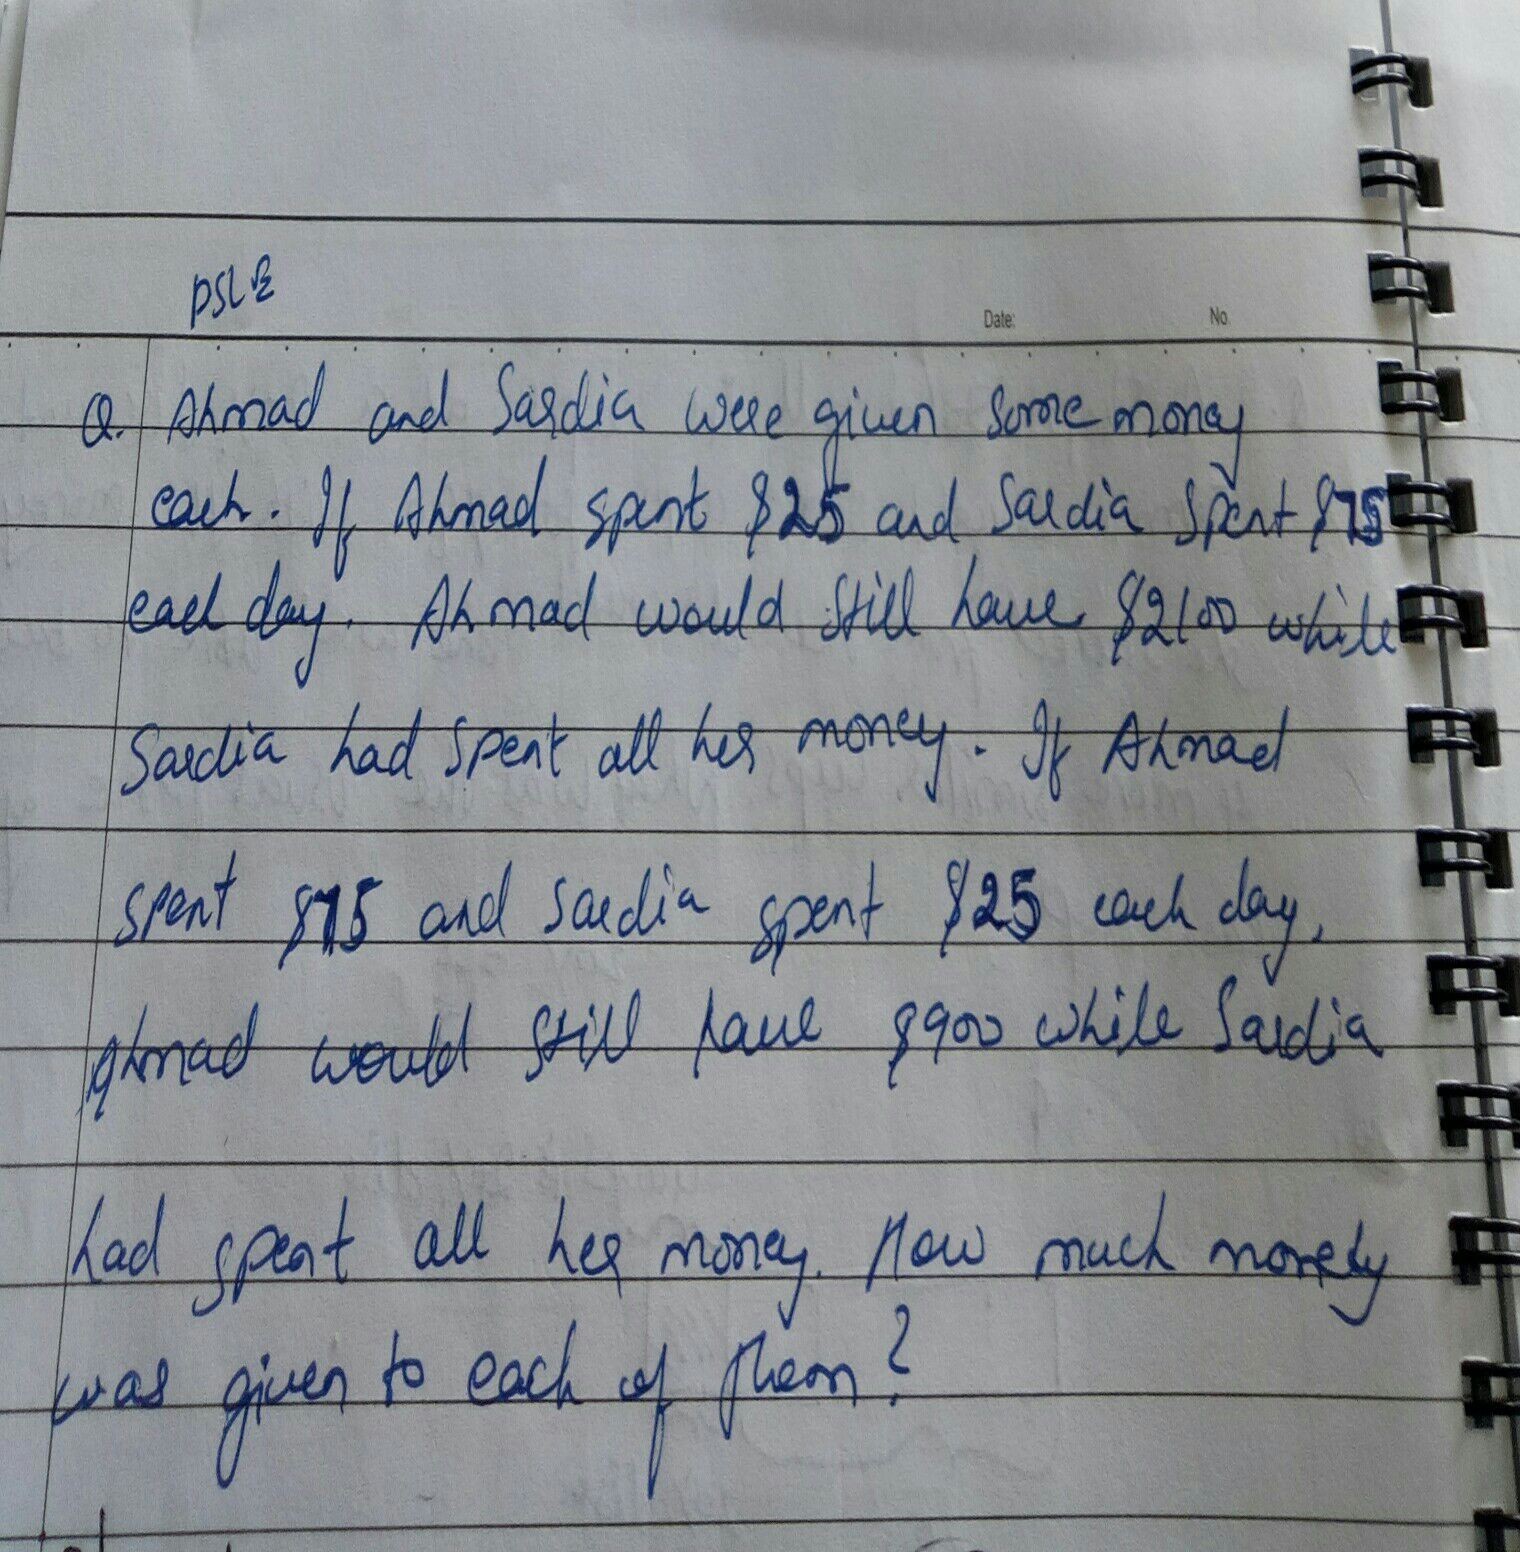 PSLE
Date: No.
Q. Ahmad and Sardia were given some money
each. If Ahmad spent $25 and Sardia spent $75
each day. Ahmad would still have $2100 while
Sardia had spent all her money. If Ahmad
spent $75 and Sardia spent $25 each day,
Ahmad would still have $900 while Sardia
had spent all her money. How much monety
was given to each of them?